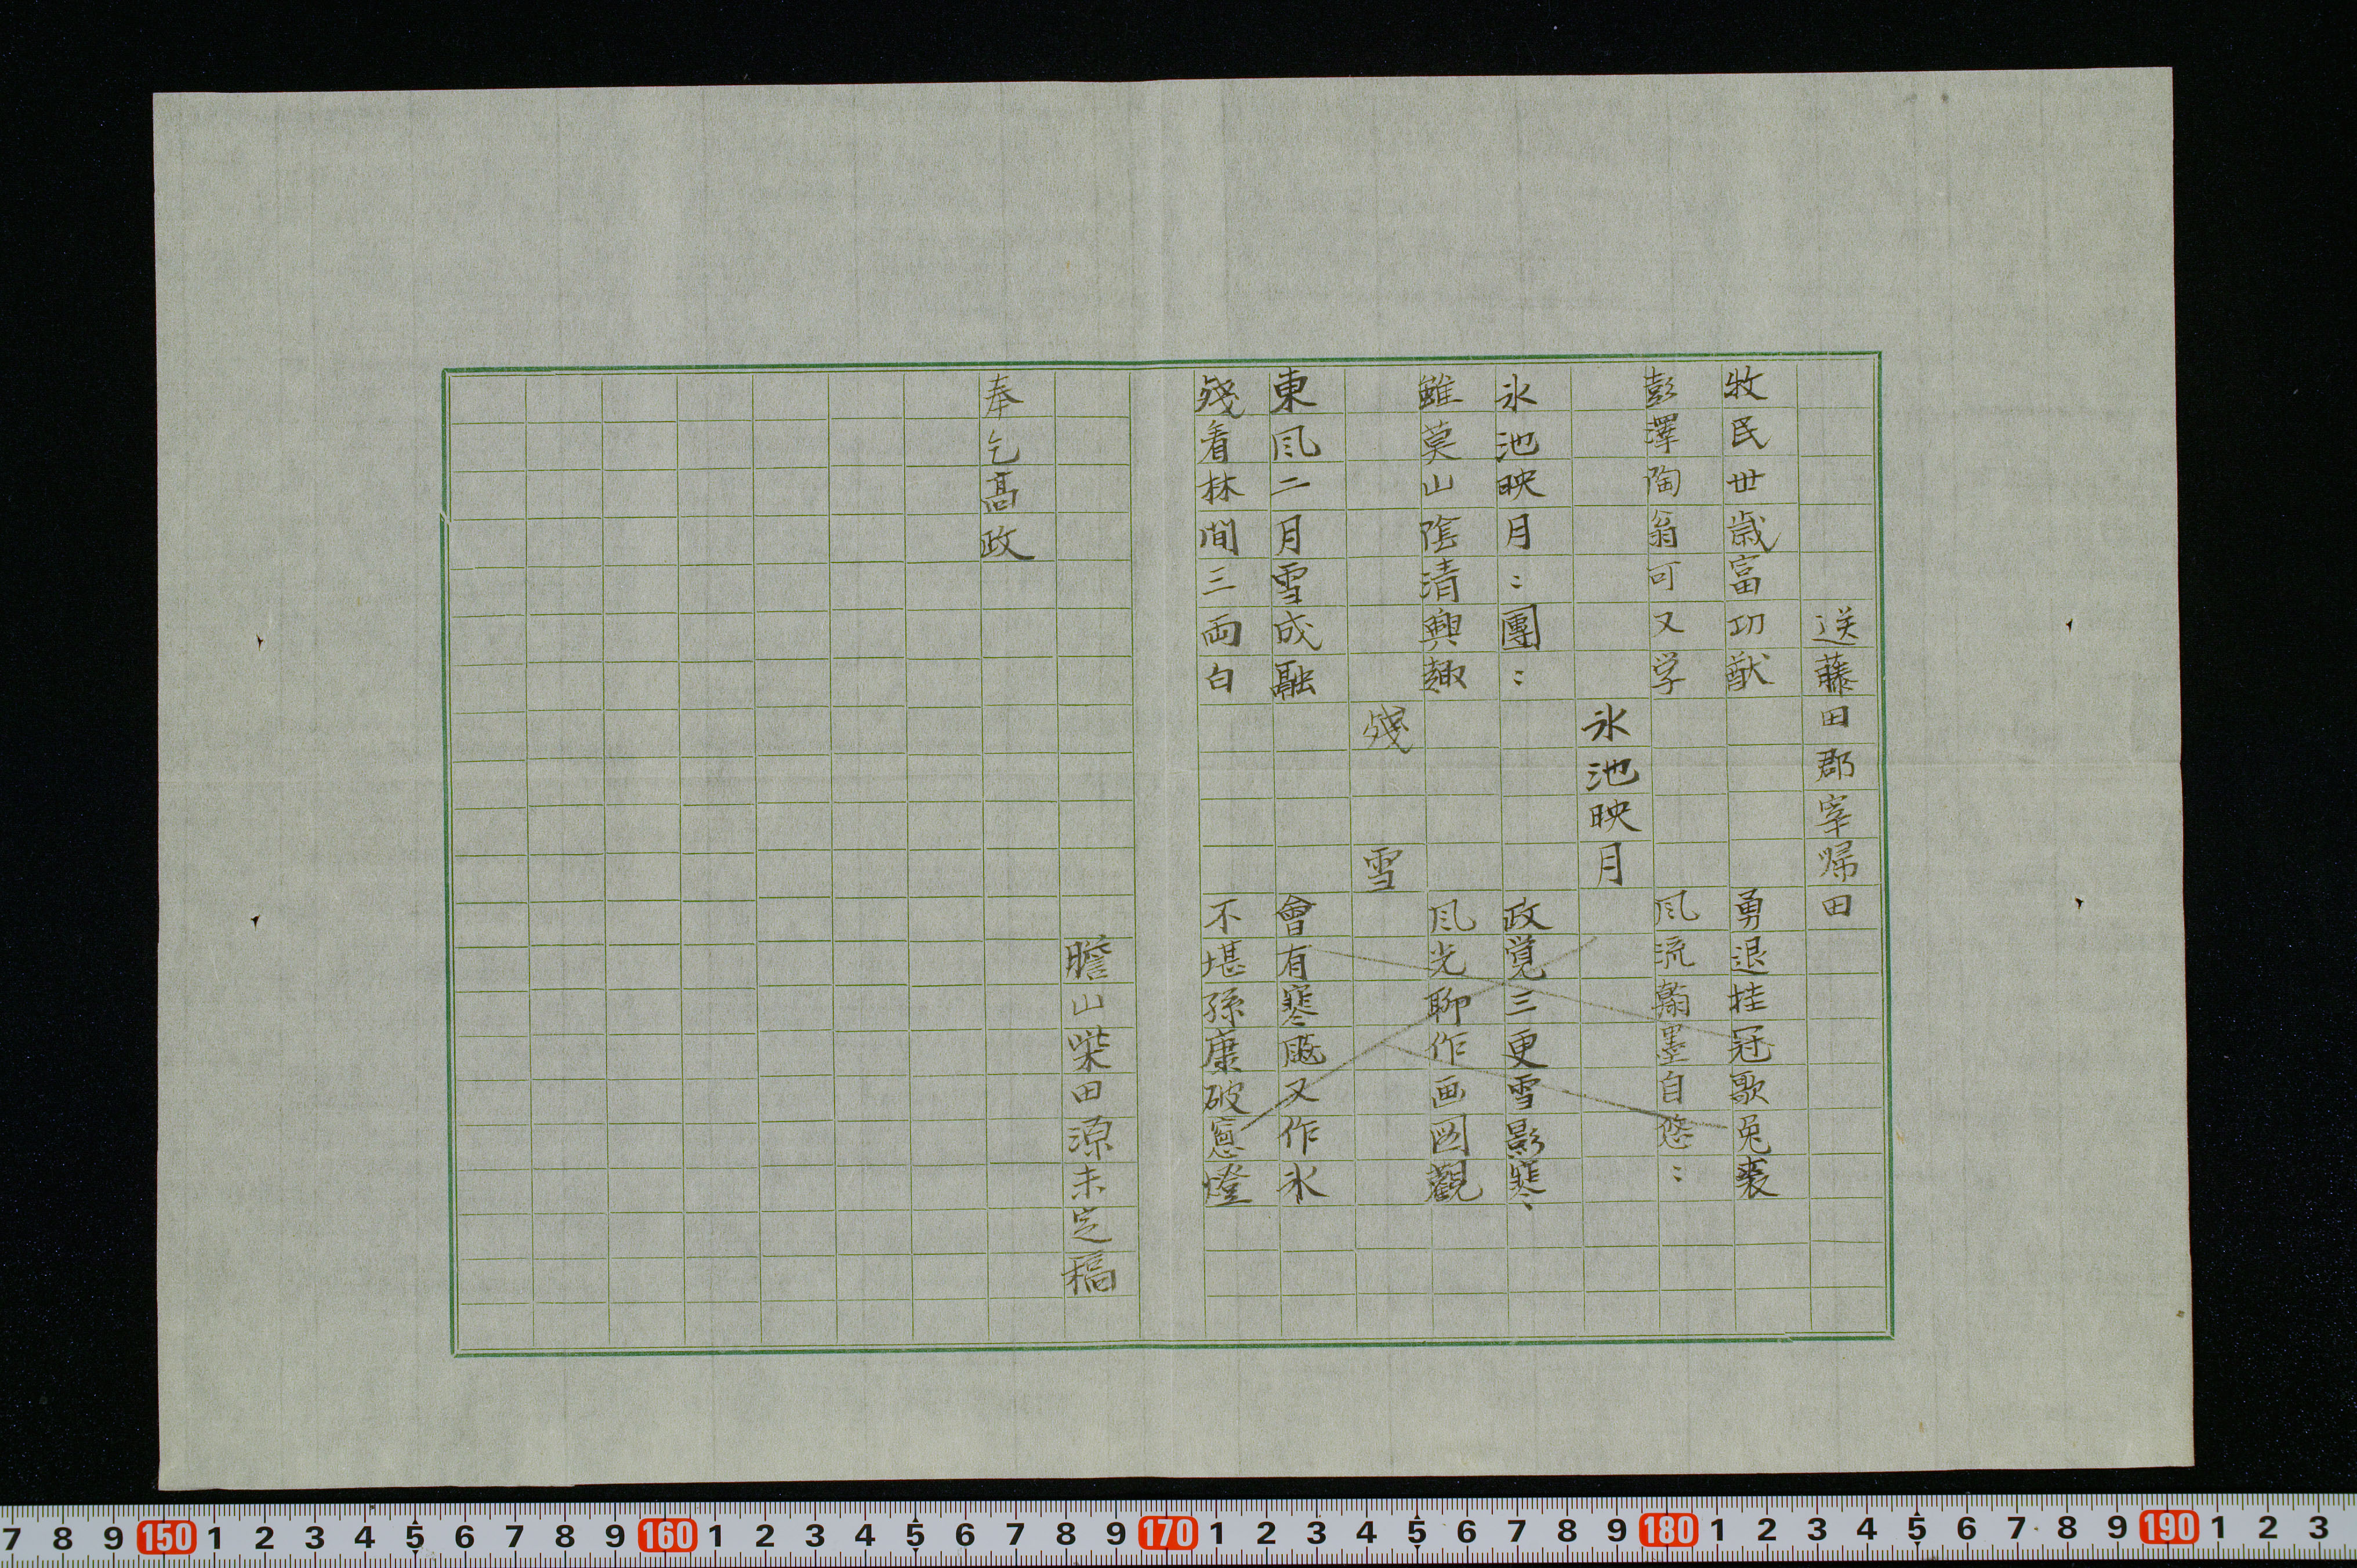 送藤田郡宰帰田
牧民丗歳富功猷 勇退挂冠歌兎裘
彭澤陶翁可又学 風流翰墨自悠〻
氷池映月
氷池映月〻團〻 政覚三更雪影寒
雖莫山陰清興趣 風光聊作画図觀
殘雪
東風二月雪成融 會有寒厩又作氷
殘看林間三両白 不堪孫康破窓燈
瞻山柴田源未定稿
奉乞髙政
7 8 9 150 1 2 3 4 5 6 7 8 9 160 1 2 3 4 5 6 7 8 9 170 1 2 3 4 5 6 7 8 9 180 1 2 3 4 5 6 7 8 9 190 1 2 3